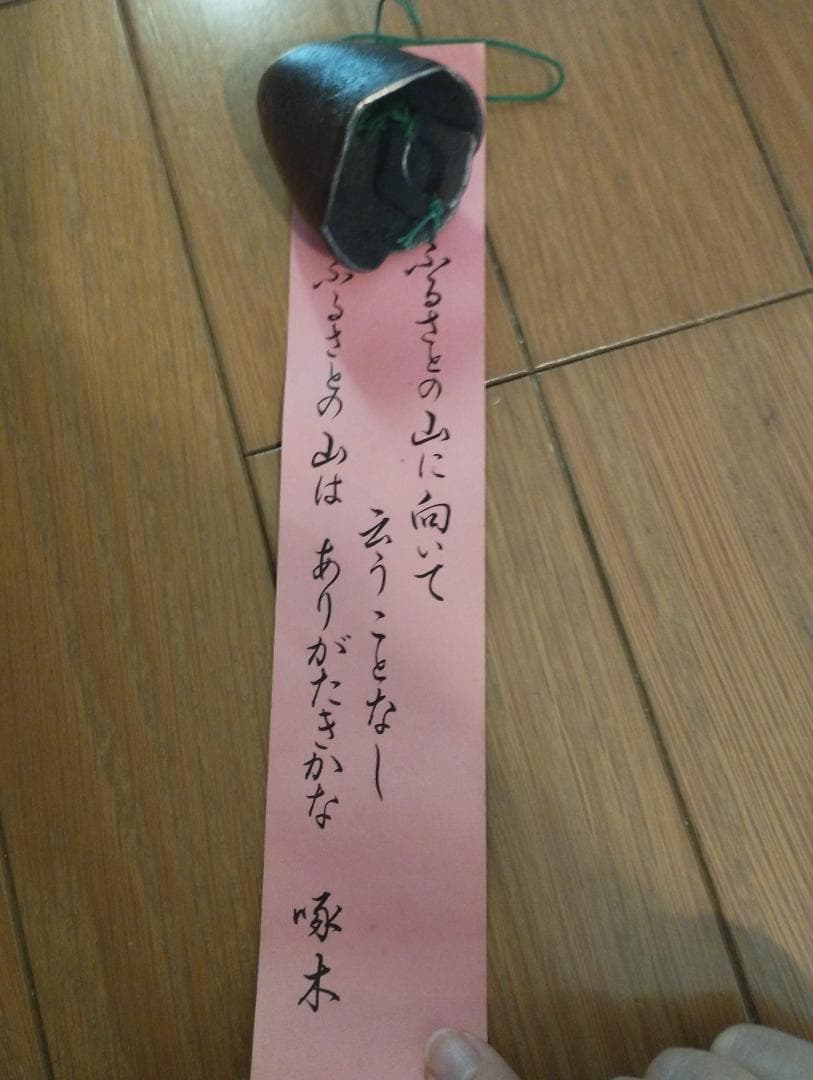 ふるさとの山に向いて
云うことなし
ふるさとの山は ありがたきかな
啄木